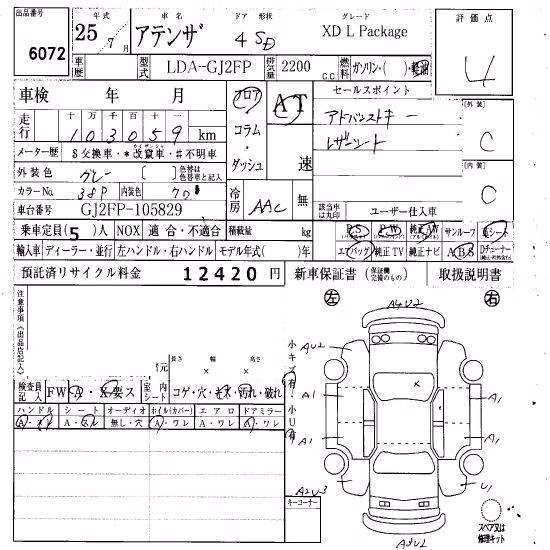 出品番号 年式 車名 ドア 形状 グレード 評価点
6072 25年 7月 アテンザ 4 SD XD L Package 4
車歴 型式 LDA-GJ2FP 排気量 2200 c.c. 燃料 ガソリン・( )・軽油
車検 年 月 フロア AT セールスポイント
走行 十万 万 千 百 十 一 アドバンストキー 【外装】
103059 km コラム レザーシート C
メーター歴 $交換車・*改竄車・#不明車 ダッシュ 速 【内装】
外装色 グレー 〔 〕 色替は色替車と記入 C
カラーNo. 38P 内装色 冷房 AAC 無 該当車は丸印 ユーザー仕入車
車台番号 GJ2FP-105829
乗車定員(5)人 NOX 適合・不適合 積載量 kg PS PW 純正AW サンルーフ 革シート
輸入車 ディーラー・並行 左ハンドル・右ハンドル モデル年式( )年 エアバッグ 純正TV 純正ナビ ABS
預託済リサイクル料金 12420円 新車保証書 取扱説明書
注意事項(出品店記入) 左 右
A4U2
AU2
小キズ有・小U有
長さ 幅 高さ
荷元 × ×
A1 A1
検査員記入 FW A・X・要ス 室内シート コゲ・穴・汚れ・破れ
ハンドル シート オーディオ ホイル(カバー) エアロ ドアミラー
A・スレ A・スレ 無し・穴 A・ワレ A・ワレ A・ワレ
A1 A1
A2U3 U1
キーコーナー
スペア又は修理キット
A3U2